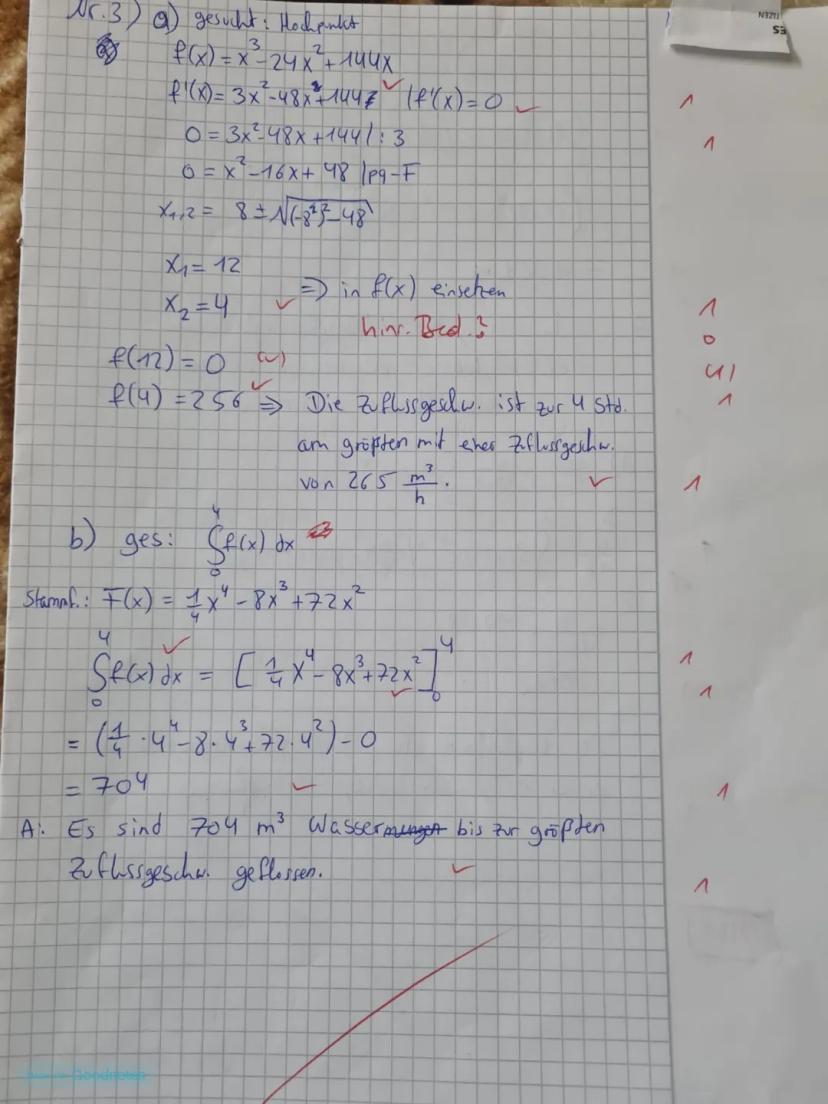 Nr. 3) a) gesucht: Hochpunkt
f(x) = x³ - 24x² + 144x
f'(x) = 3x² - 48x + 144 ✓ | f'(x) = 0 ✓ 1
0 = 3x² - 48x + 144 | : 3 1
0 = x² - 16x + 48 | pq-F
x₁,₂ = 8 ± √((-8²)² - 48)
x₁ = 12
⇒ in f(x) einsetzen
x₂ = 4 ✓ 1
hinr. Bed.? 0
f(12) = 0 (✓) (1)
f(4) = 256 ✓ ⇒ Die Zuflussgeschw. ist zur 4 Std. 1
am größten mit einer Zuflussgeschw.
von 265 m³/h. ✓ 1
b) ges: ∫₀⁴ f(x) dx
Stammf.: F(x) = 1/4 x⁴ - 8x³ + 72x²
✓
∫₀⁴ f(x) dx = [1/4 x⁴ - 8x³ + 72x²]₀⁴ 1
✓ 1
= (1/4 · 4⁴ - 8 · 4³ + 72 · 4²) - 0
= 704 ✓ 1
A: Es sind 704 m³ Wasser bis zur größten
Zuflussgeschw. geflossen. ✓ 1